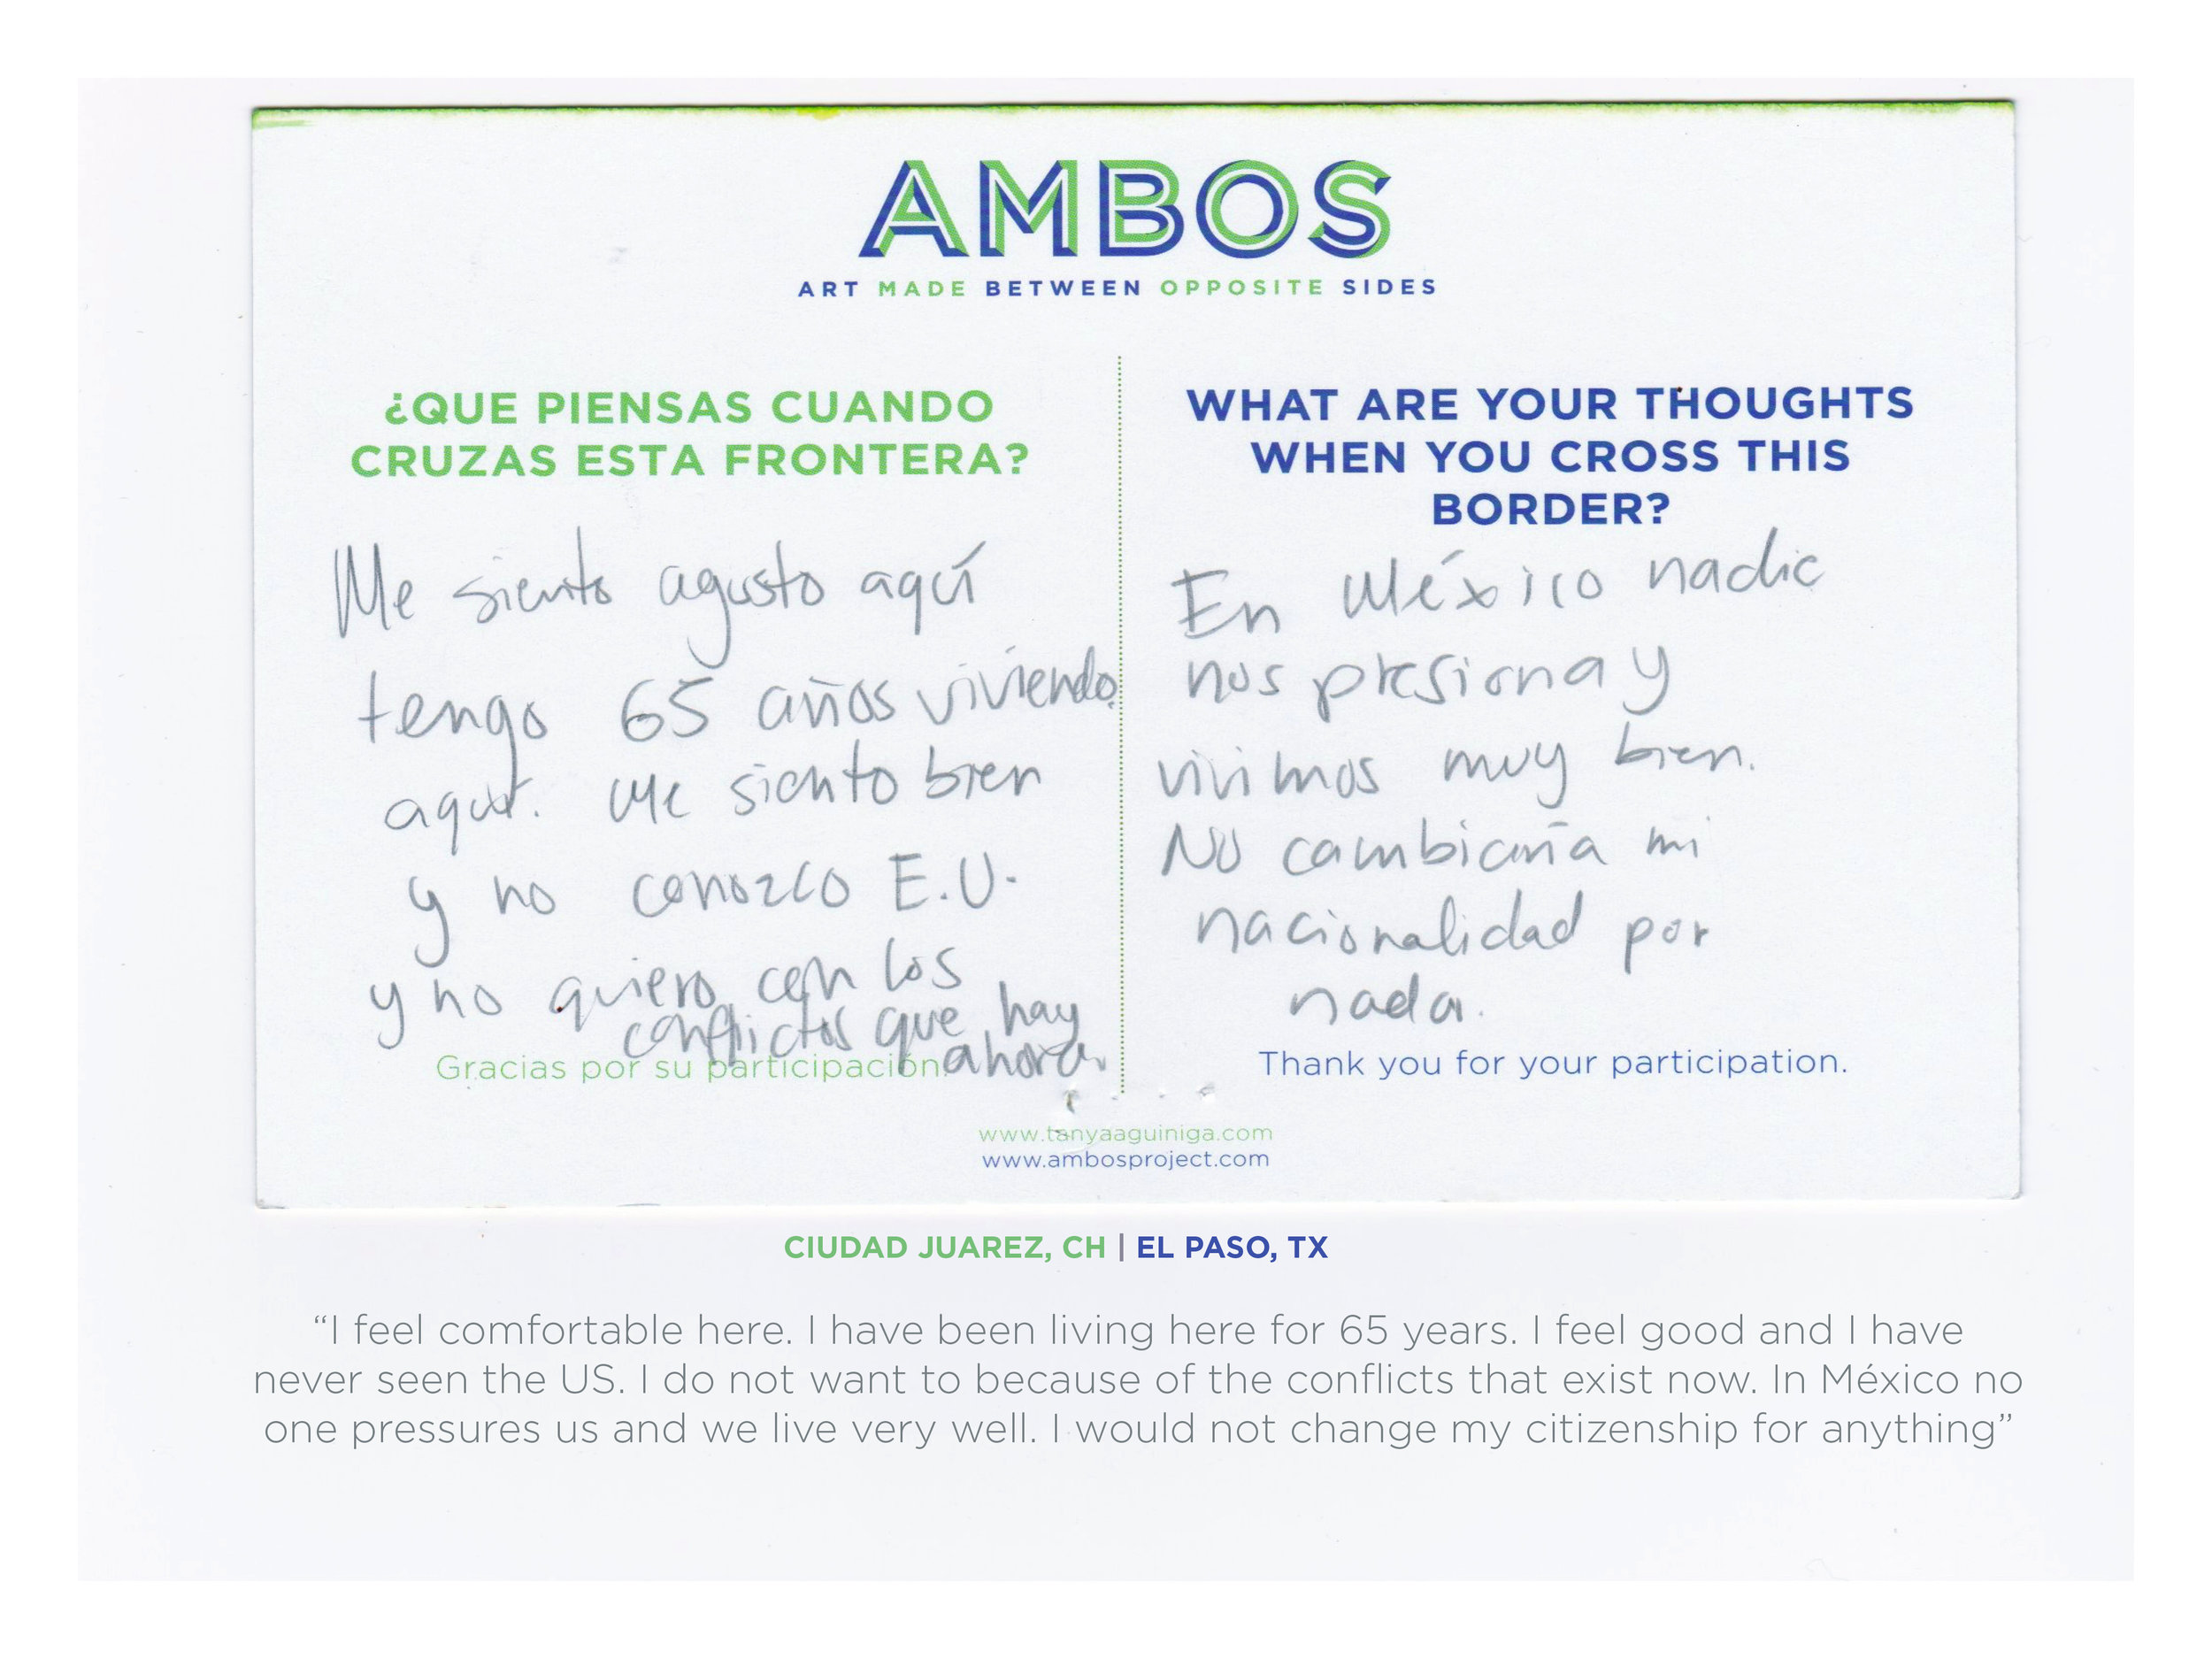 AMBOS
ART MADE BETWEEN OPPOSITE SIDES
¿QUE PIENSAS CUANDO
CRUZAS ESTA FRONTERA?
Me siento agusto aquí
tengo 65 años viviendo
aquí. Me siento bien
y no conozco E.U.
y no quiero con los
conflictos que hay
ahora.
Gracias por su participación
WHAT ARE YOUR THOUGHTS
WHEN YOU CROSS THIS
BORDER?
En México nadie
nos presiona y
vivimos muy bien.
No cambiaría mi
nacionalidad por
nada.
Thank you for your participation.
www.tanyaaguiniga.com
www.ambosproject.com
CIUDAD JUAREZ, CH | EL PASO, TX
“I feel comfortable here. I have been living here for 65 years. I feel good and I have
never seen the US. I do not want to because of the conflicts that exist now. In México no
one pressures us and we live very well. I would not change my citizenship for anything”